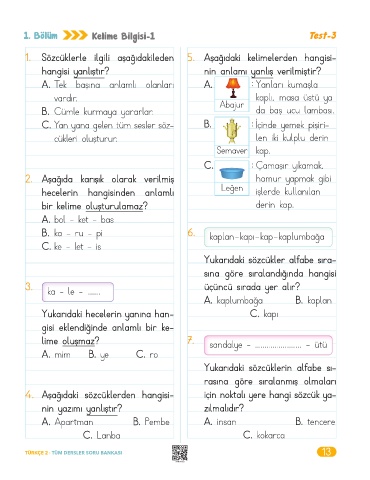 1. Bölüm
Kelime Bilgisi-1
Test-3
1. Sözcüklerle ilgili aşağıdakileden
hangisi yanlıştır?
A. Tek başına anlamlı olanları
vardır.
B. Cümle kurmaya yararlar.
C. Yan yana gelen tüm sesler söz-
cükleri oluşturur.
2. Aşağıda karışık olarak verilmiş
hecelerin hangisinden anlamlı
bir kelime oluşturulamaz?
A. bol - ket - bas
B. ko - ru - pi
C. ke - let - is
3.
ka - le - ......
Yukarıdaki hecelerin yanına han-
gisi eklendiğinde anlamlı bir ke-
lime oluşmaz?
A. mim B. ye C. ro
4. Aşağıdaki sözcüklerden hangisi-
nin yazımı yanlıştır?
A. Apartman B. Pembe
C. Lanba
5. Aşağıdaki kelimelerden hangisi-
nin anlamı yanlış verilmiştir?
A.
Abajur
: Yanları kumaşla
kaplı, masa üstü ya
da baş ucu lambası.
B.
Semaver
: İçinde yemek pişiri-
len iki kulplu derin
kap.
C.
Leğen
: Çamaşır yıkamak,
hamur yapmak gibi
işlerde kullanılan
derin kap.
6.
kaplan-kapı-kap-kaplumbağa
Yukarıdaki sözcükler alfabe sıra-
sına göre sıralandığında hangisi
üçüncü sırada yer alır?
A. kaplumbağa B. kaplan
C. kapı
7.
sandalye - ...................... - ütü
Yukarıdaki sözcüklerin alfabe sı-
rasına göre sıralanmış olmaları
için noktalı yere hangi sözcük ya-
zılmalıdır?
A. insan B. tencere
C. kokarca
TÜRKÇE 2 TÜM DERSLER SORU BANKASI
13